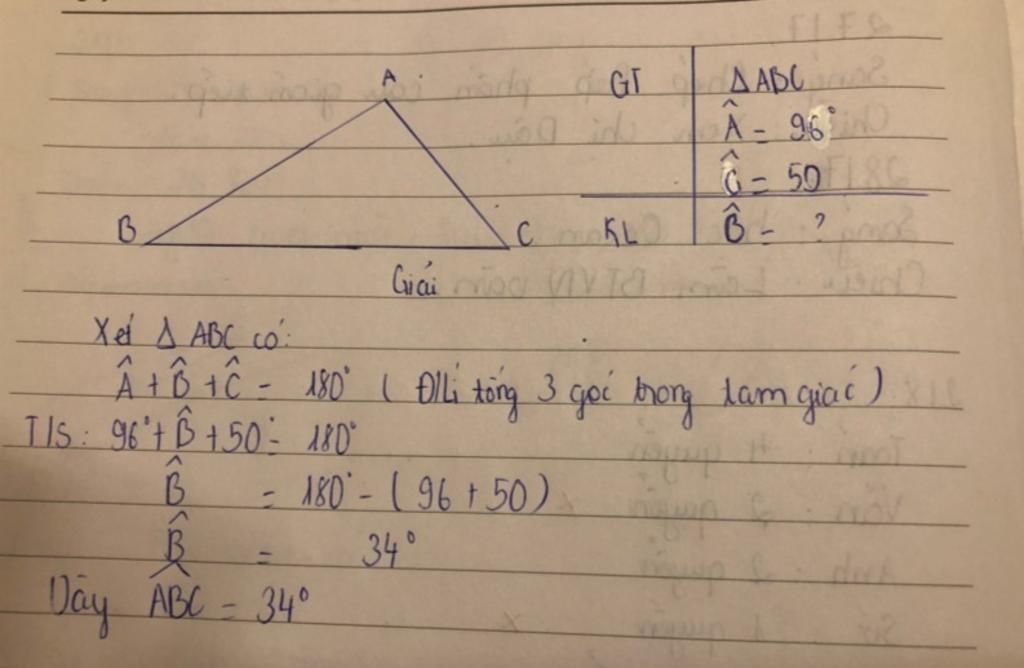 A
B
C
GT
ΔABC
Â = 96°
Ĉ = 50
KL
B̂ = ?
Giải
Xét Δ ABC có:
Â + B̂ + Ĉ = 180° ( Đ/Lí tổng 3 góc trong tam giác )
T/S: 96° + B̂ + 50° = 180°
B̂ = 180° - ( 96 + 50 )
B̂ = 34°
Vậy ABC = 34°